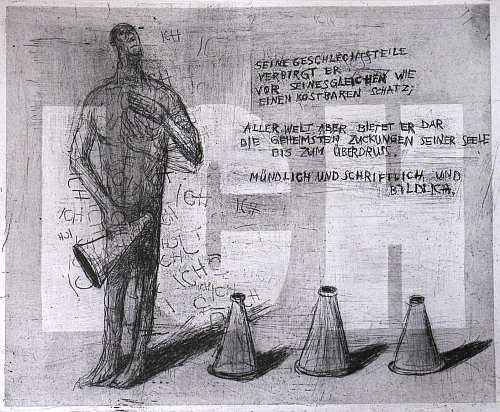 ICH
SEINE GESCHLECHTSTEILE
VERBIRGT ER
VOR SEINESGLEICHEN WIE
EINEN KOSTBAREN SCHATZ;
ALLER WELT ABER BIETET ER DAR
DIE GEHEIMSTEN ZUCKUNGEN SEINER SEELE
BIS ZUM ÜBERDRUSS.
MÜNDLICH UND SCHRIFTLICH UND
BILDLICH.
ICH
ICH
ICH
ICH
ICH
ICH